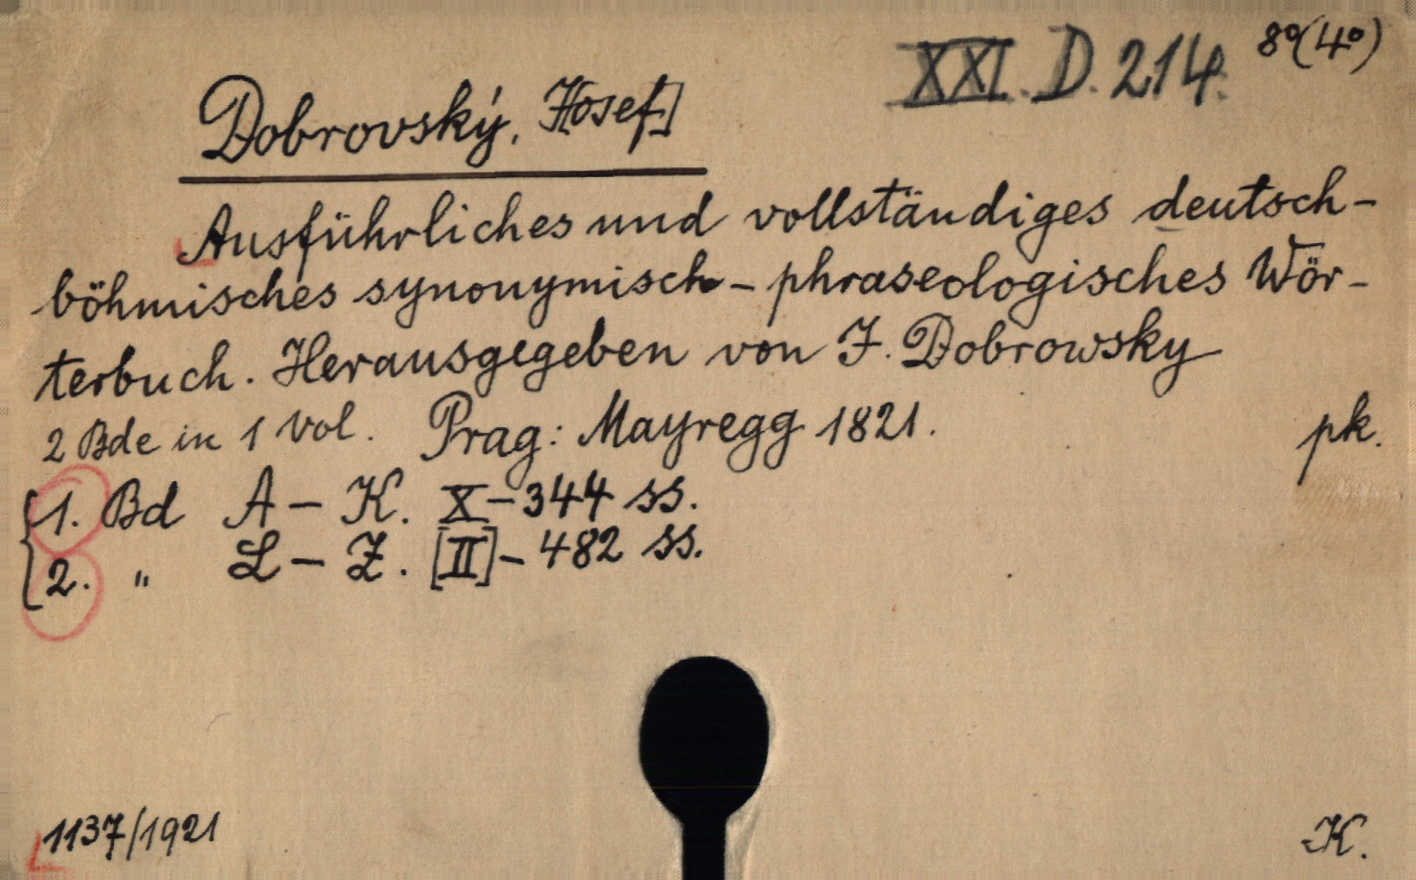 XXI. D. 214. 8º(4º)
Dobrovský, J[osef]
Ausführliches und vollständiges deutsch-
böhmisches synonymisch-phraseologisches Wör-
terbuch. Herausgegeben von J. Dobrowsky
2 Bde in 1 Vol. Prag: Mayregg 1821. pk.
1. Bd A – K. X – 344 ss.
2. „ L – Z. [II] – 482 ss.
1137/1921 K.